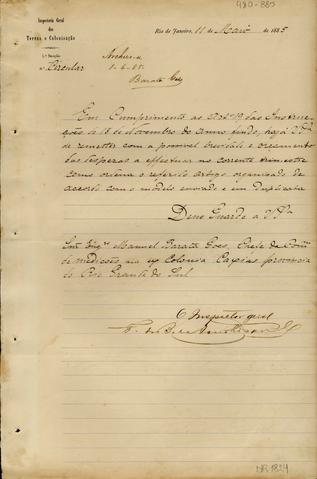 490-883
Inspetoria Geral
das
Terras e Colonização
Rio de Janeiro, 11 de Maio de 1885
Secção
Circular
Archive
1-6-85
Barata Góes
Em cumprimento ao Artº 19 das Instruc-
ções de 18 de Novembro do anno findo, haja Vª Sª
de remetter com a possivel brevidade o orçamento
das despezas a effectuar no corrente trimestre
como ordena o referido artigo organizado de
acordo com o modelo enviado e em duplicata
Deus Guarde a Vª Sª
Snr. Engº Manuel Barata Goes, Chefe da Comm
de medições na ex Colonia Caxias provincia
do Rio Grande do Sul
O Inspector geral
F. de B.
DB 1824